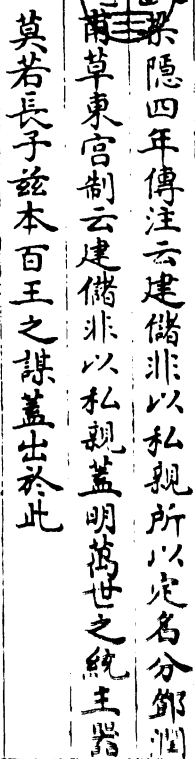 梁隱四年傳注云建儲非以私親所以定名分鄧潤
甫草東宮制云建儲非以私親蓋明萬世之統主器
莫若長子兹本百王之謀蓋出於此